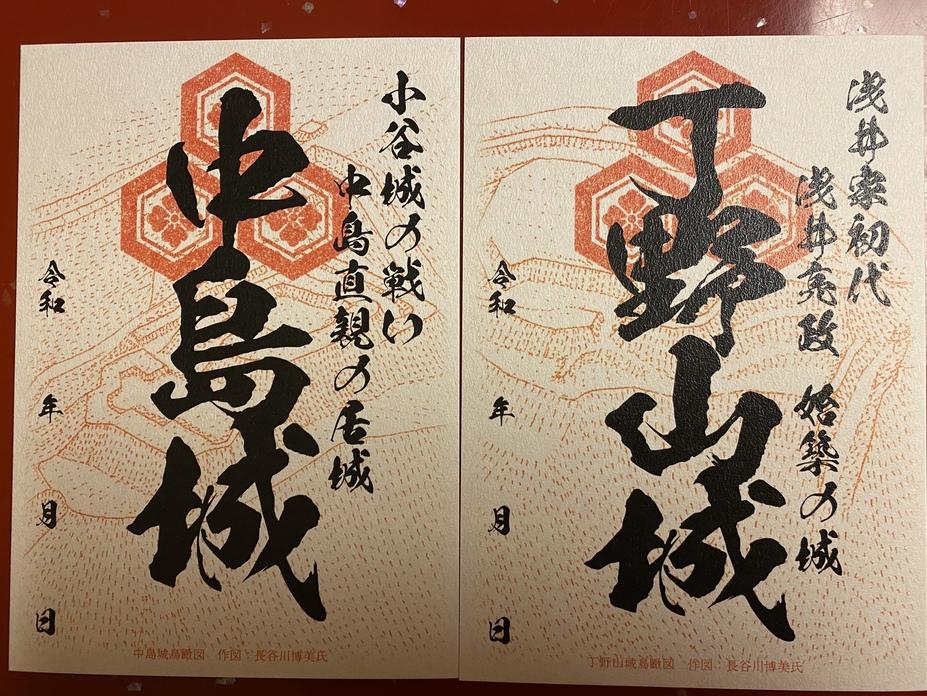 浅井家初代
浅井亮政 始築の城
丁野山城
令和 年 月 日
丁野山城鳥瞰図 作図:長谷川博美氏
小谷城の戦い
中島直親の居城
中島城
令和 年 月 日
中島城鳥瞰図 作図:長谷川博美氏